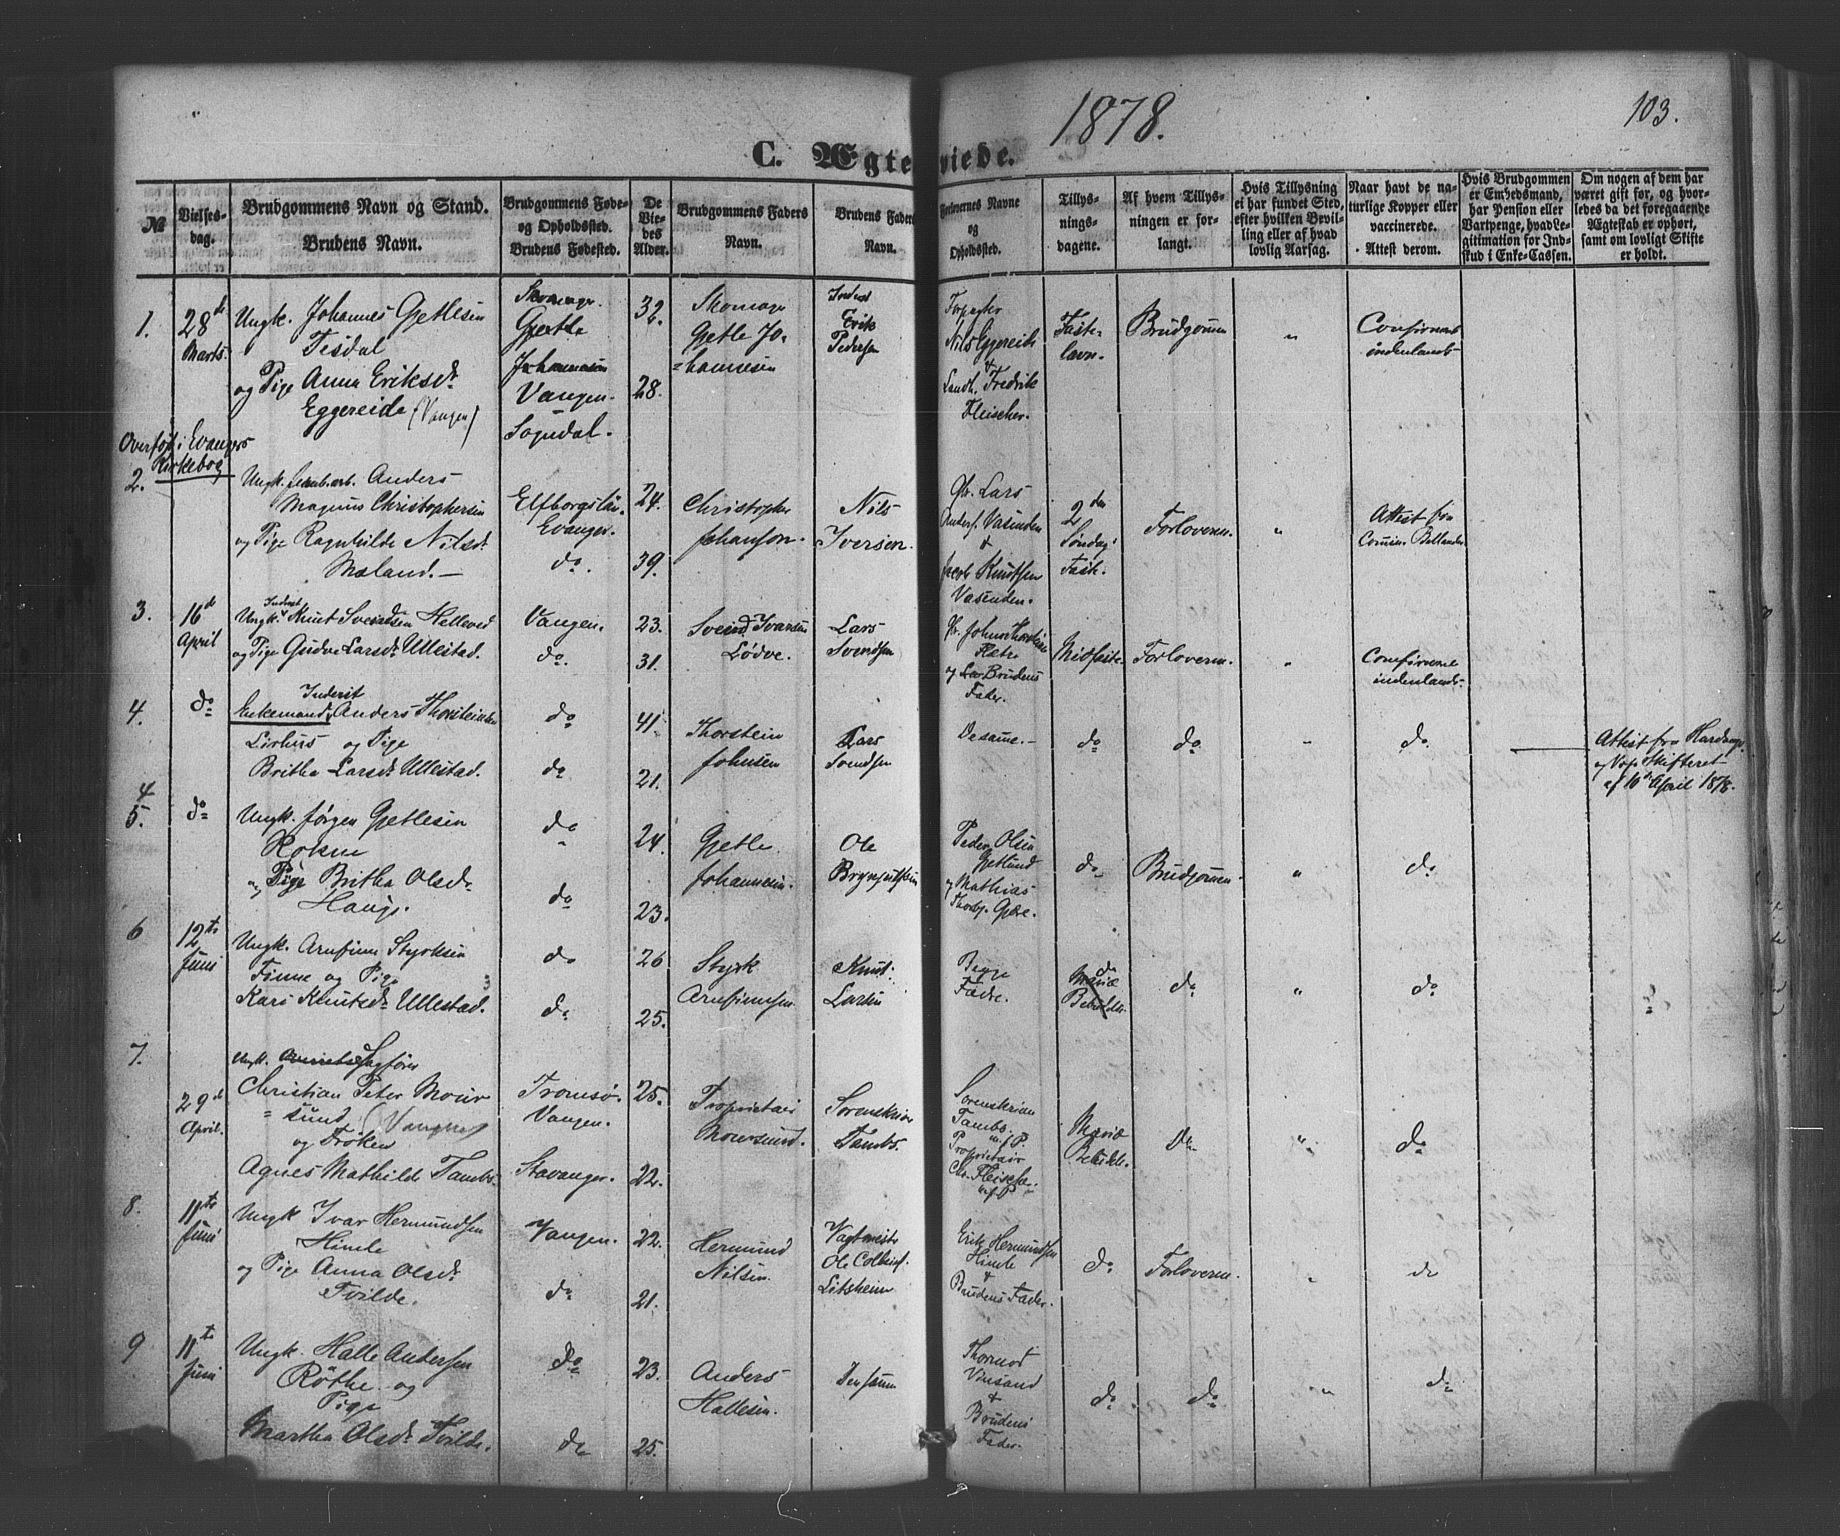 1878.
103.
C. Ægteviede.
№
Vielses-
dag.
Brudgommens Navn og Stand.
Brudens Navn.
Brudgommens Føde-
og Opholdssted.
Brudens Fødested.
De
Vie-
des
Alder.
Brudgommens Faders
Navn.
Brudens Faders
Navn.
Forlovernes Navne
og
Opholdssted.
Tillys-
nings-
dagene.
Af hvem Tillys-
ningen er for-
langt.
Hvis Tillysning
ei har fundet Sted,
efter hvilken Bevil-
ling eller af hvad
lovlig Aarsag.
Naar havt de na-
turlige Kopper eller
vaccinerede.
Attest derom.
Hvis Brudgommen
er Embedsmand,
har Pension eller
Vartpenge, hvad Le-
gitimation for Ind-
skud i Enke-Cassen.
Om nogen af dem har
været gift før, og hvor-
ledes da det foregaaende
Ægteskab er ophørt,
samt om lovligt Skifte
er holdt.
1.
28de
Marts.
Ungk. Johannes Gjetlesen
Tesdal
og Pige Anna Eriksdr
Eggereide (Vangen)
Skomager
Gjetle
Johannesen
Vangen.
Sogndal.
32.
28.
Skomager
Gjetle Jo-
hannesen
Inderst
Erik
Pedersen
Forpagter
Nils Eggereide
&
Landh. Fredrik
Fleischer.
Faste-
lavn.
Brudgommen
"
Confirmeret
indenlands
Overført i Evangers
Kirkebog
2.
Ungk. Jernb.arb. Anders
Magnus Christophersen
og Pige Ragnhilde Nilsdr
Mæland.
Elfborgslän
Evanger.
do.
24.
39.
Christopher
Johanson.
Nils
Iversen.
Gbr. Lars
Anders. Vasenden
&
Jacob Knudsen
Vasenden.
2den
Søndag i
Faste.
Forloveren.
"
Attest fra
3.
16de
April
Inderst
Ungk. Knut Svendsen Helleved
og Pige Gudve Larsdr Ullestad.
Vangen.
do.
23.
31.
Svend Ivarsen
Lødve.
Lars
Svendsen
Gbr. Johans Thorstein
Fletre
og Brudens
Fader.
Midfaste.
Forloveren.
"
Confirmerede
indenlands.
4.
do
Inderst
Enkemand Anders Thorsteinsen
Lirhus og Pige
Britha Larsdr Ullestad.
do
do
41.
21.
Thorstein
Johnsen
Lars
Svendsen
De samme.
do
do.
"
do.
Attest fra Hardanger
og Vos Skifteret
af 10de April 1878.
4
5.
do
Ungk. Jørgen Gjetlesen
Rokne
og Pige Britha Olsdr
Hauge.
do
do
24.
23.
Gjetle
Johannesen.
Ole
Brynjulfsen
Peder Olsen
Gjetlund
og Mathias
Thorbj. Gjære.
do
Brudgommen.
"
do.
6
12te
Juni
Ungk. Arnfinn Styrksen
Finne og Pige
Kari Knutsdr Ullestad.
do
do
26
25.
Styrk
Arnfinnsen.
Knut
Larsen
Begge
Fædre.
do
Mariæ
Bebudelse.
do
"
do
7.
29de
April.
Ungk. Sagfører
Christian Peter Mour
sund (Vangen)
og Frøken
Agnes Mathilde Tambs.
Tromsø.
Vangen.
Stavanger.
25.
22.
Proprietair
Moursund.
Sorenskriver
Tambs.
Sorenskriver
Tambs.
m/P.
Proprietair
Chr. Fleischer.
m/P
Mariæ
Bebudelse.
do
"
do
8.
11te
Juni
Ungk Ivar Hermundsen
Himle
og Pige Anna Olsdr
Tvilde.
Vangen.
do
22.
21.
Hermund
Nilsen.
Vagtmester
Ole Colbeins.
Litsheim
Erik Hermundsen
Himle
&
Brudens Fader.
do
Forloveren.
"
do
9
11te
Juni
Ungk. Halle Andersen
Røthe og
Pige
Martha Olsdr Tvilde.
do
do
23.
25.
Anders
Hallesen.
Den samme
Thormod
Vinsand
&
Brudens
Fader.
do
do
"
do